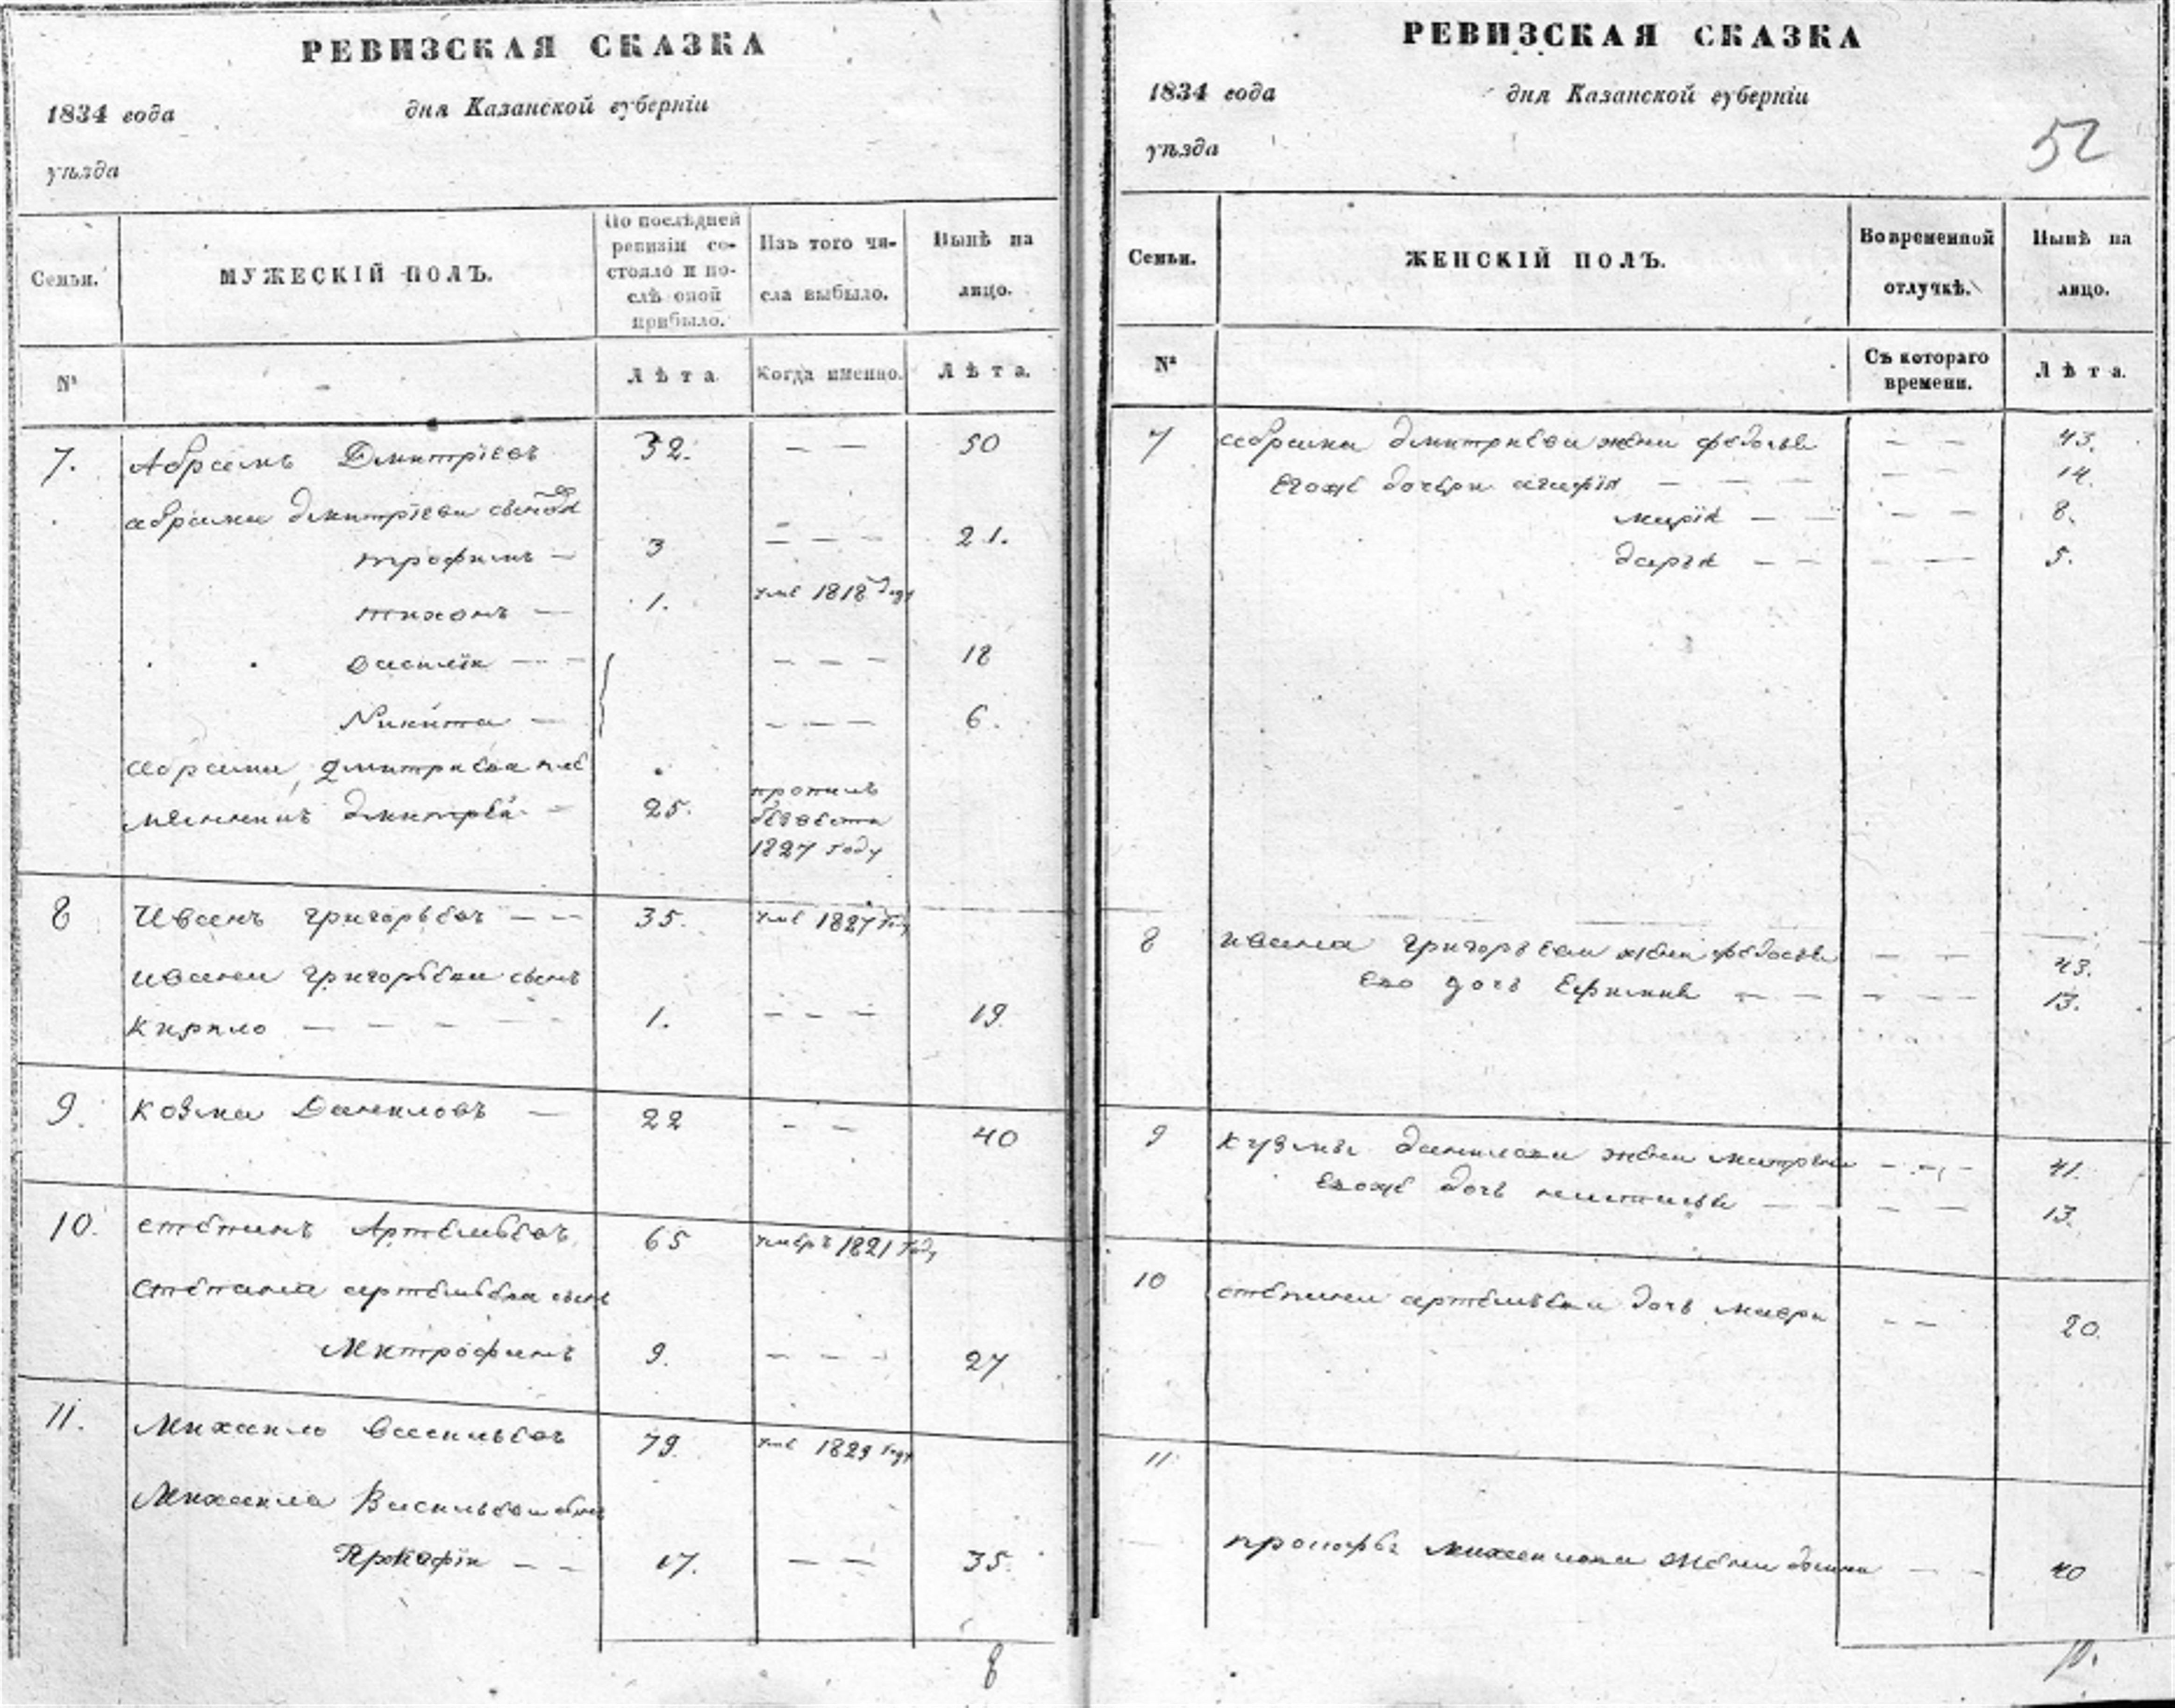 РЕВИЗСКАЯ СКАЗКА
1834 года дня Казанской губерніи
уѣзда
Семьи. МУЖЕСКІЙ ПОЛЪ. По послѣдней ревизіи состояло и послѣ оной прибыло. Изъ того числа выбыло. Нынѣ на лицо.
№ Лѣта. Когда именно. Лѣта.
7. Абрамъ Дмитріевъ 32. — — 50
абрама дмитріева сыновья
трофимъ — 3 — — — 21.
тихонъ — 1. уме 1818 году
василіи — — — — — 18
Никита — — — — 6.
абрама дмитриева пле
мянникъ дмитреи — 25. пропалъ
безвести
1827 году
8 Иванъ григорьевъ — — 35. уме 1827 году
ивана григорьева сынъ
кирило — — — — — 1. — — — 19
9. козма Даниловъ — 22 — — 40
10. степанъ Артемьевъ 65 умеръ 1821 году
степана артемьева сынъ
Митрофанъ 9. — — — 27
11. Михаило васильевъ 79. уме 1829 году
Михаила Васильева сынъ
Прокофіи — — 17. — — 35.
8
РЕВИЗСКАЯ СКАЗКА
1834 года дня Казанской губерніи
уѣзда
52
Семьи. ЖЕНСКІЙ ПОЛЪ. Во временной отлучкѣ. Нынѣ на лицо.
№ Съ котораго времени. Лѣта.
7 абрама дмитриева жена федосья — — 43.
егоже дочери агафія — — — — — 14.
марія — — — — 8.
дарья — — — — 5.
8 ивана григорьева жена федосья — — 43.
его дочь Ефимия — — — — — 13.
9 кузмы данилова жена матрена — — — 41.
егоже дочь настасья — — — — 13.
10 степана артемьева дочь мавра — — 20.
11
прокофья михаилова жена — — 40
10.